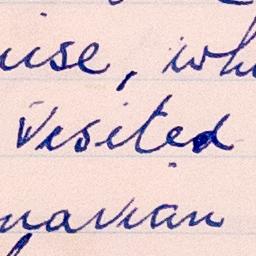 uise, whi
visited
navian